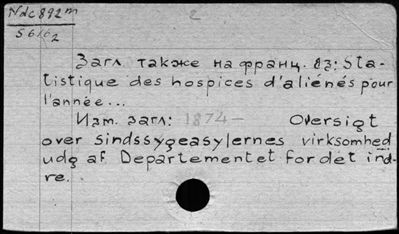 Ndc892m
S6162
2
Загл также на франц. яз: Sta-
tistique des hospices d'aliénés pour
l'année...
Изм. загл: 1874- Oversigt
over sindssygeasylernes virksomhed
udg af Departementet for det ind-
re.